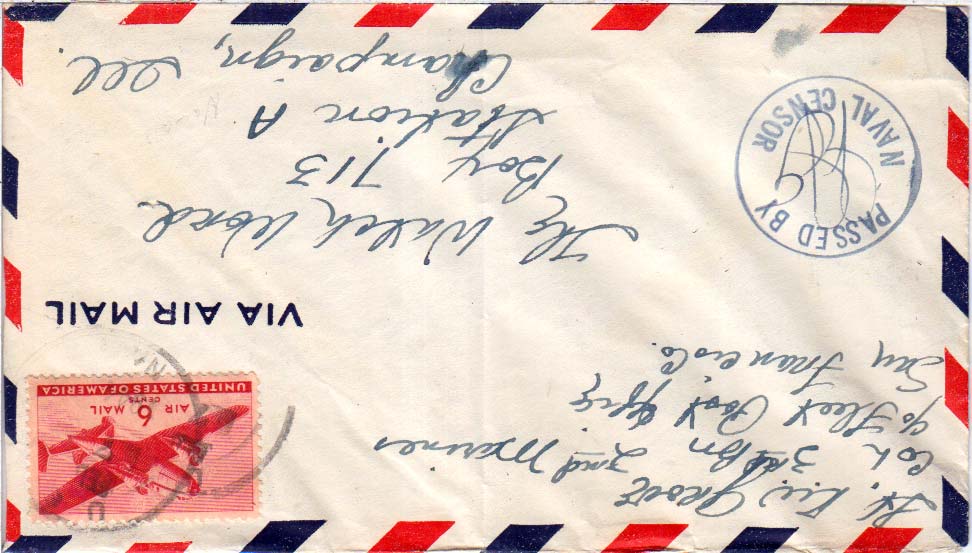 Lt. K.W. Grove
Co L 3rd Bn 2nd Marines
c/o Fleet Post Office
San Francisco.
AIR 6 MAIL
CENTS
UNITED STATES OF AMERICA
VIA AIR MAIL
PASSED BY
NAVAL CENSOR
The Watch Word
Box 713
Station A
Champaign, Ill.